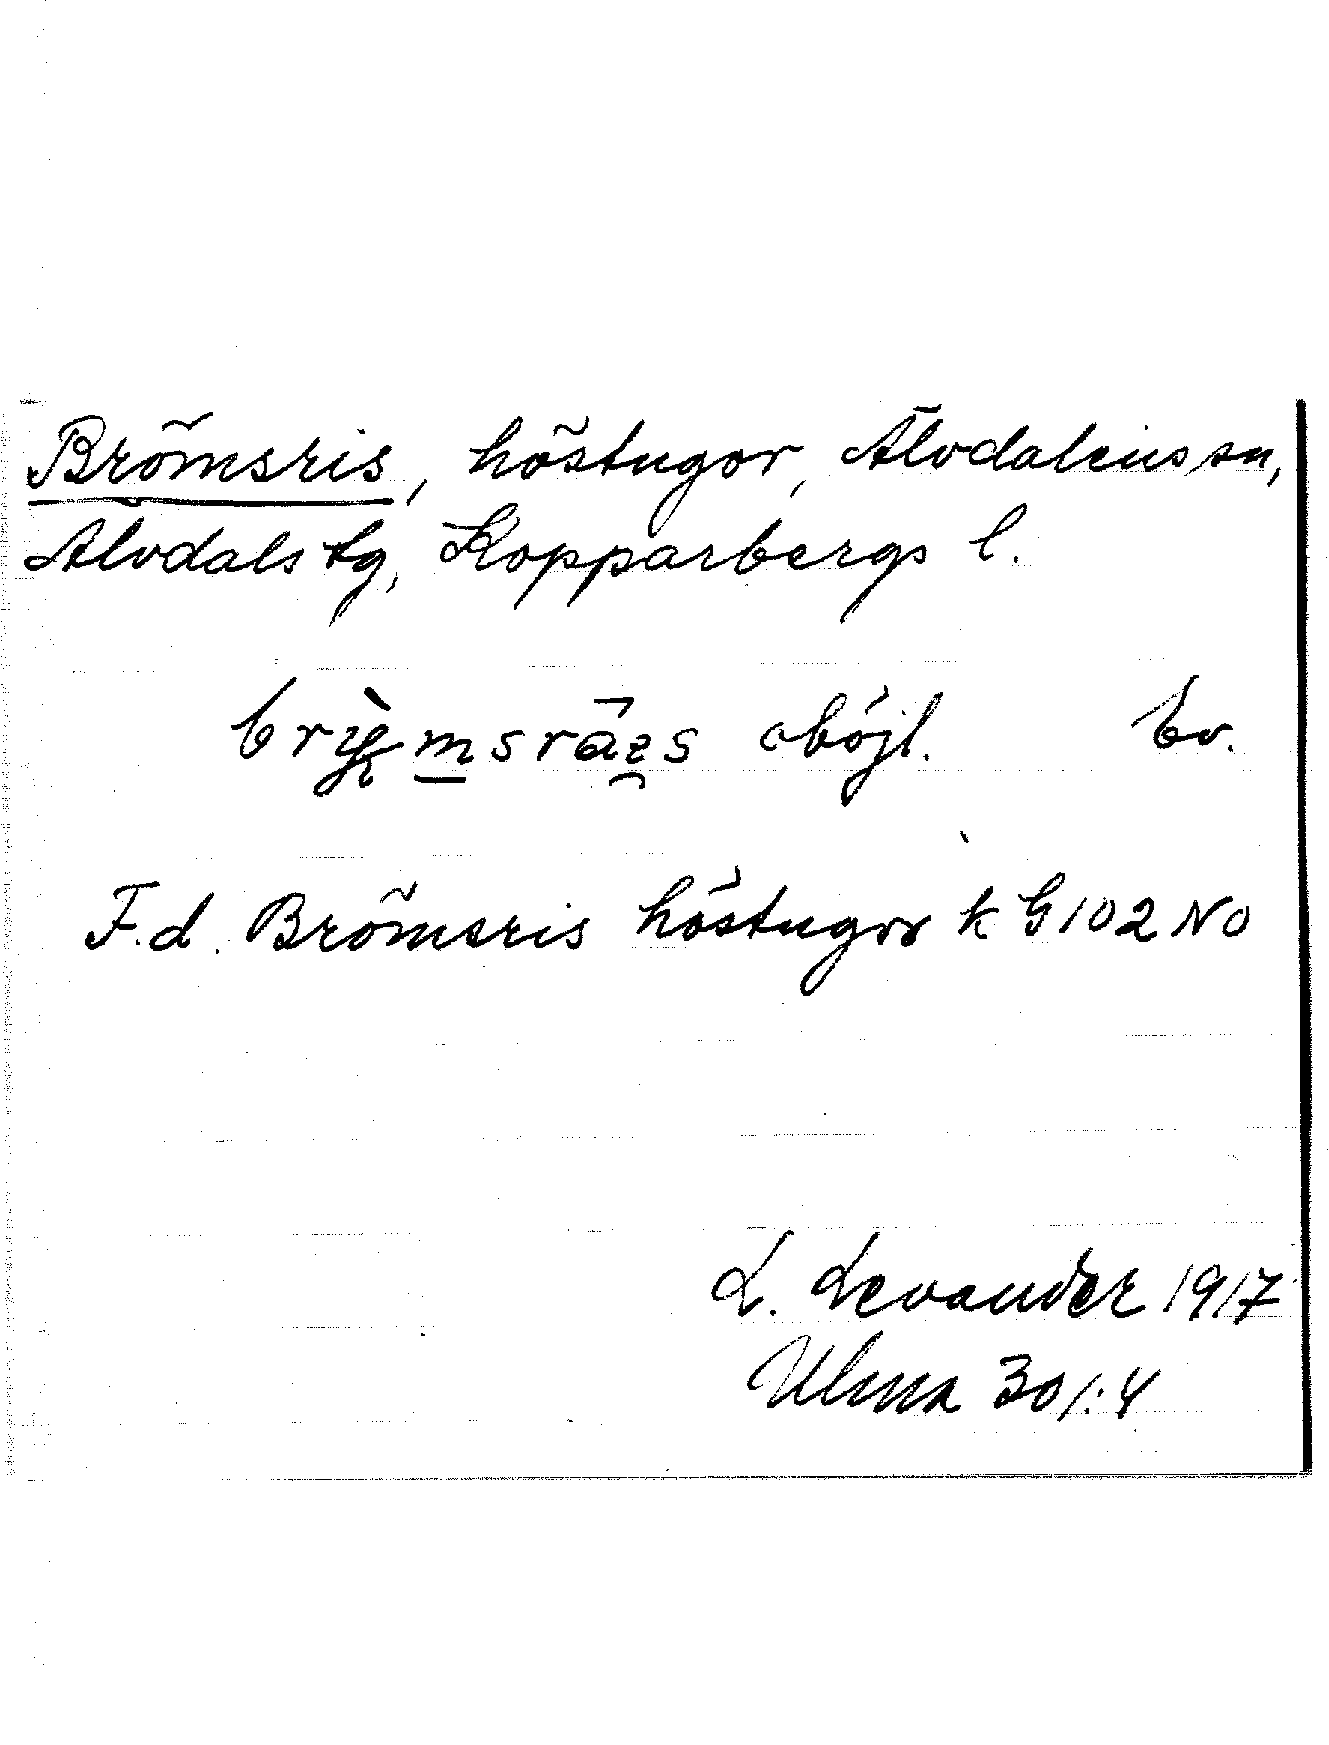 Brömsris, höstugor, Älvdalens sn,
Älvdals tg, Kopparbergs l.
oböjl. Ev.
F.d. Brömsris höstugor k G 102 NO
L. Levander 1917
Ulma 301:4